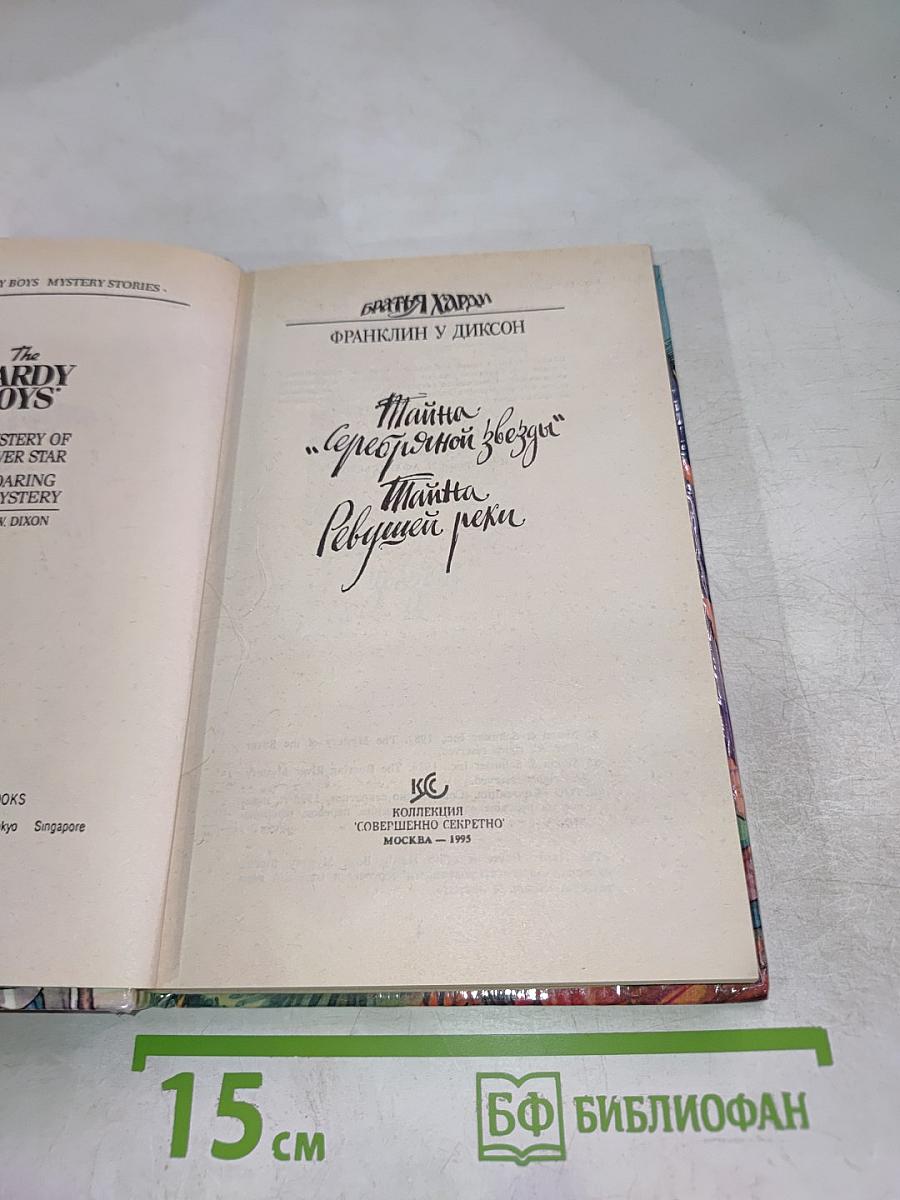 Y BOYS MYSTERY STORIES
The
ARDY
OYS
STERY OF
VER STAR
OARING
YSTERY
W. DIXON
OOKS
kyo Singapore
БРАТЬЯ ХАРДИ
ФРАНКЛИН У ДИКСОН
Тайна
„Серебряной звезды“
Тайна
Ревущей реки
КСС
КОЛЛЕКЦИЯ
"СОВЕРШЕННО СЕКРЕТНО"
МОСКВА — 1995
15 см
БФ БИБЛИОФАН